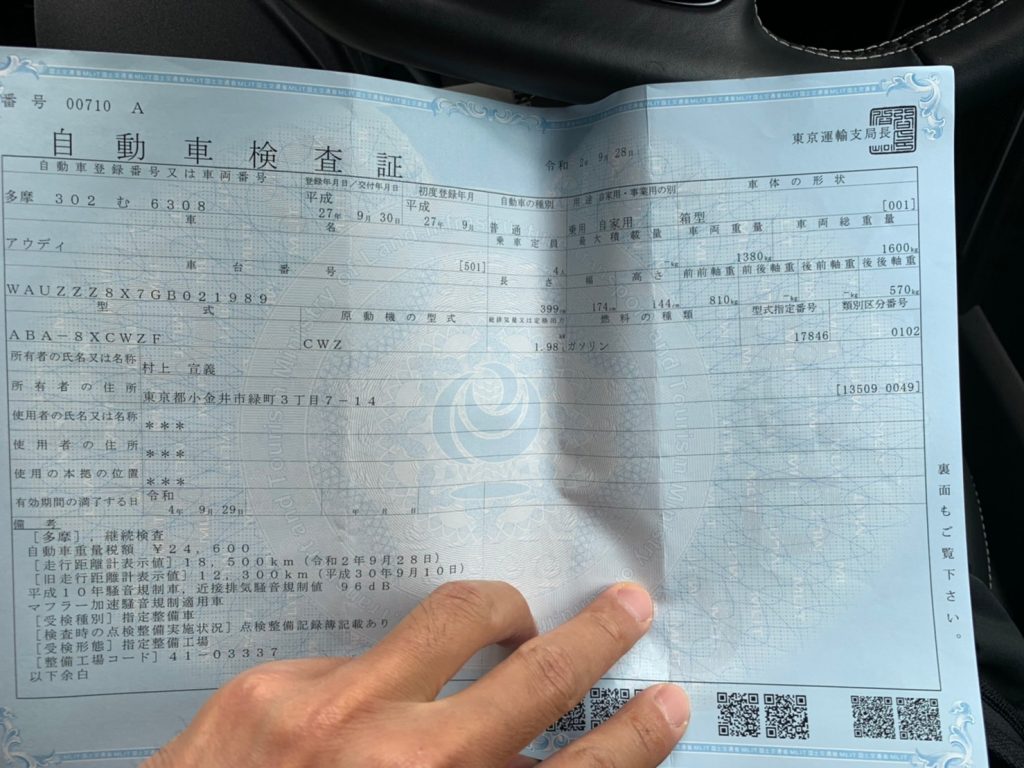 番号 00710 A
自動車検査証
令和 2年 9月28日
東京運輸支局長
自動車登録番号又は車両番号 登録年月日／交付年月日 初度登録年月 自動車の種別 用途 自家用・事業用の別 車体の形状
多摩 302 む 6308 平成 27年 9月30日 平成 27年 9月 普通 乗用 自家用 箱型 [001]
車名 乗車定員 最大積載量 車両重量 車両総重量
アウディ [501] 4人 －kg 1380kg 1600kg
車台番号 長さ 幅 高さ 前前軸重 前後軸重 後前軸重 後後軸重
WAUZZZ8X7GB021989 399cm 174cm 144cm 810kg －kg －kg 570kg
型式 原動機の型式 総排気量又は定格出力 燃料の種類 型式指定番号 類別区分番号
ABA-8XCWZF CWZ 1.98 ガソリン 17846 0102
所有者の氏名又は名称 村上 宣義
所有者の住所 東京都小金井市緑町３丁目７－１４ [13509 0049]
使用者の氏名又は名称 ＊＊＊
使用者の住所 ＊＊＊
使用の本拠の位置 ＊＊＊
有効期間の満了する日 令和 4年 9月 29日 年 月 日
備考
[多摩]，継続検査
自動車重量税額 ￥２４，６００
[走行距離計表示値] １８，５００ｋｍ（令和２年９月２８日）
[旧走行距離計表示値] １２，３００ｋｍ（平成３０年９月１０日）
平成１０年騒音規制車，近接排気騒音規制値 ９６ｄＢ
マフラー加速騒音規制適用車
[受検種別] 指定整備車
[検査時の点検整備実施状況] 点検整備記録簿記載あり
[受検形態] 指定整備工場
[整備工場コード] ４１－０３３３７
以下余白
裏面もご覧下さい。